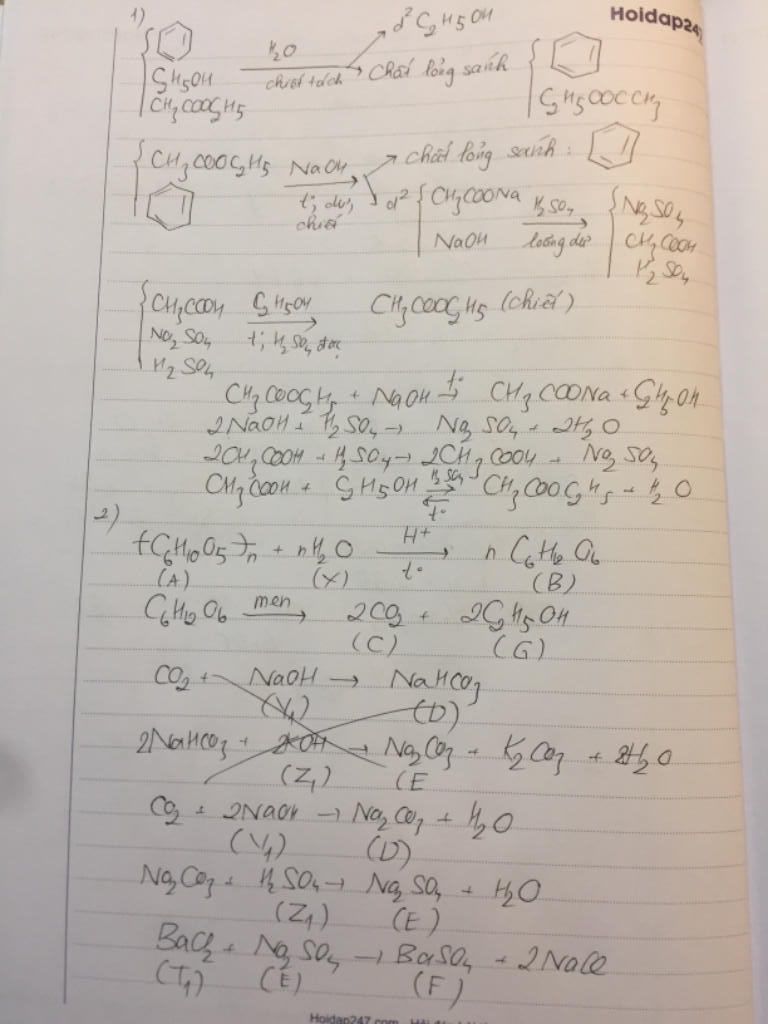 Hoidap247
1)
d² C2H5OH
C2H5OH
CH3COOC2H5
H2O
chiết tách
chất lỏng sánh
C2H5OOCCH3
CH3COOC2H5
NaOH
t°, dư,
chiết
chất lỏng sánh:
d²
CH3COONa
NaOH
H2SO4
loãng dư
Na2SO4
CH3COOH
H2SO4
CH3COOH
Na2SO4
H2SO4
C2H5OH
t°, H2SO4 đặc
CH3COOC2H5 (chiết)
CH3COOC2H5 + NaOH →t° CH3COONa + C2H5OH
2NaOH + H2SO4 → Na2SO4 + 2H2O
2CH3COOH + H2SO4 → 2CH3COOH + Na2SO4
CH3COOH + C2H5OH ⇌ H2SO4 t° CH3COOC2H5 + H2O
2)
(C6H10O5)n + nH2O →H+ t° n C6H12O6
(A) (X) (B)
C6H12O6 →men 2CO2 + 2C2H5OH
(C) (G)
CO2 + NaOH → NaHCO3
(Y1) (D)
2NaHCO3 + 2KOH → Na2CO3 + K2CO3 + 2H2O
(Z1) (E
CO2 + 2NaOH → Na2CO3 + H2O
(Y1) (D)
Na2CO3 + H2SO4 → Na2SO4 + H2O
(Z1) (E)
BaCl2 + Na2SO4 → BaSO4 + 2NaCl
(T1) (E) (F)
Hoidap247.com